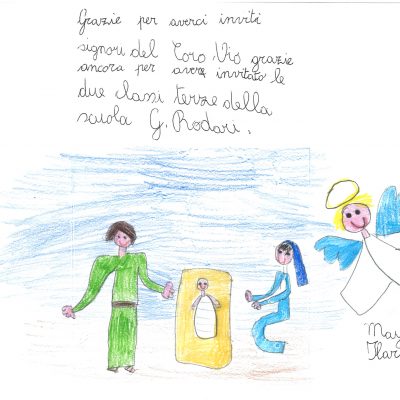 Grazie per averci inviti
signori del Coro Vio grazie
ancora per avere invitato le
due classi terze della
scuola G. Rodari.
May
Ilar